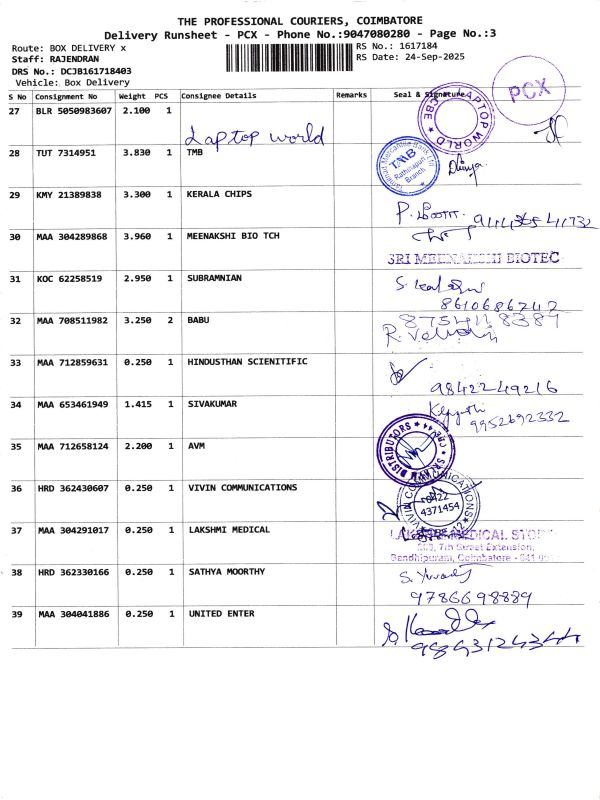 THE PROFESSIONAL COURIERS, COIMBATORE
Delivery Runsheet - PCX - Phone No.:9047080280 - Page No.:3
Route: BOX DELIVERY x
RS No.: 1617184
Staff: RAJENDRAN
RS Date: 24-Sep-2025
DRS No.: DCJB161718403
Vehicle: Box Delivery
PCX
S No Consignment No Weight PCS Consignee Details Remarks Seal & Signature
27 BLR 5050983607 2.100 1 Laptop world
LAPTOP WORLD CBE
28 TUT 7314951 3.830 1 TMB
TMB
Branch
29 KMY 21389838 3.300 1 KERALA CHIPS
30 MAA 304289868 3.960 1 MEENAKSHI BIO TCH
SRI MEENAKSHI BIOTEC
31 KOC 62258519 2.950 1 SUBRAMNIAN
8610686742
32 MAA 708511982 3.250 2 BABU
8754118389
33 MAA 712859631 0.250 1 HINDUSTHAN SCIENITIFIC
9842249216
34 MAA 653461949 1.415 1 SIVAKUMAR
9952692332
35 MAA 712658124 2.200 1 AVM
DISTRIBUTORS
36 HRD 362430607 0.250 1 VIVIN COMMUNICATIONS
VIVIN COMMUNICATIONS
0422
4371454
37 MAA 304291017 0.250 1 LAKSHMI MEDICAL
LAKSHMI MEDICAL STORE
7th Street Extension,
Gandhipuram, Coimbatore - 641
38 HRD 362330166 0.250 1 SATHYA MOORTHY
9786698889
39 MAA 304041886 0.250 1 UNITED ENTER
9843124344